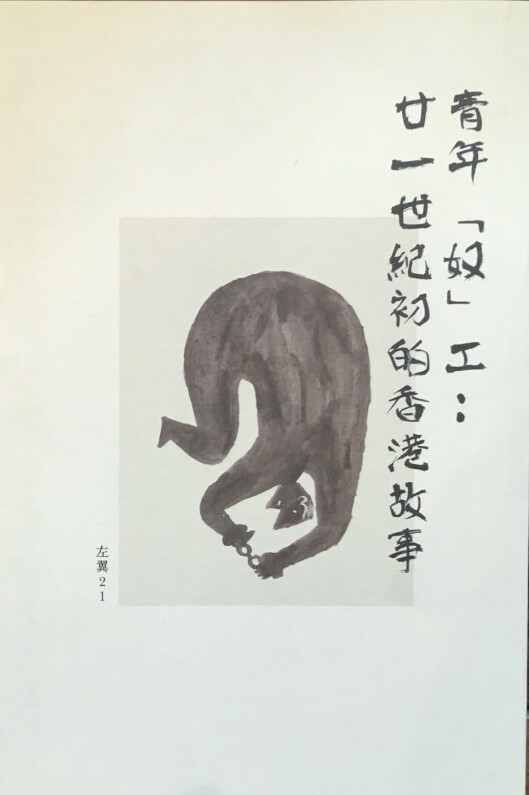 青年「奴」工：
廿一世紀初的香港故事
左翼21